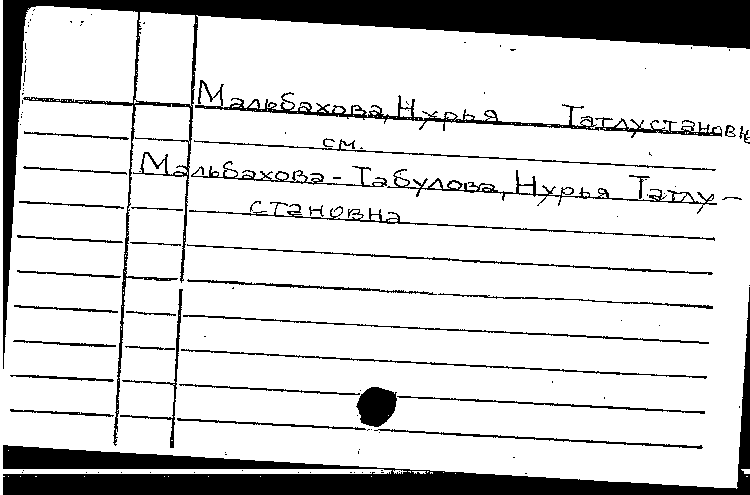 Мальбахова, Нурья Татлустановна
см.
Мальбахова-Табулова, Нурья Татлу-
становна